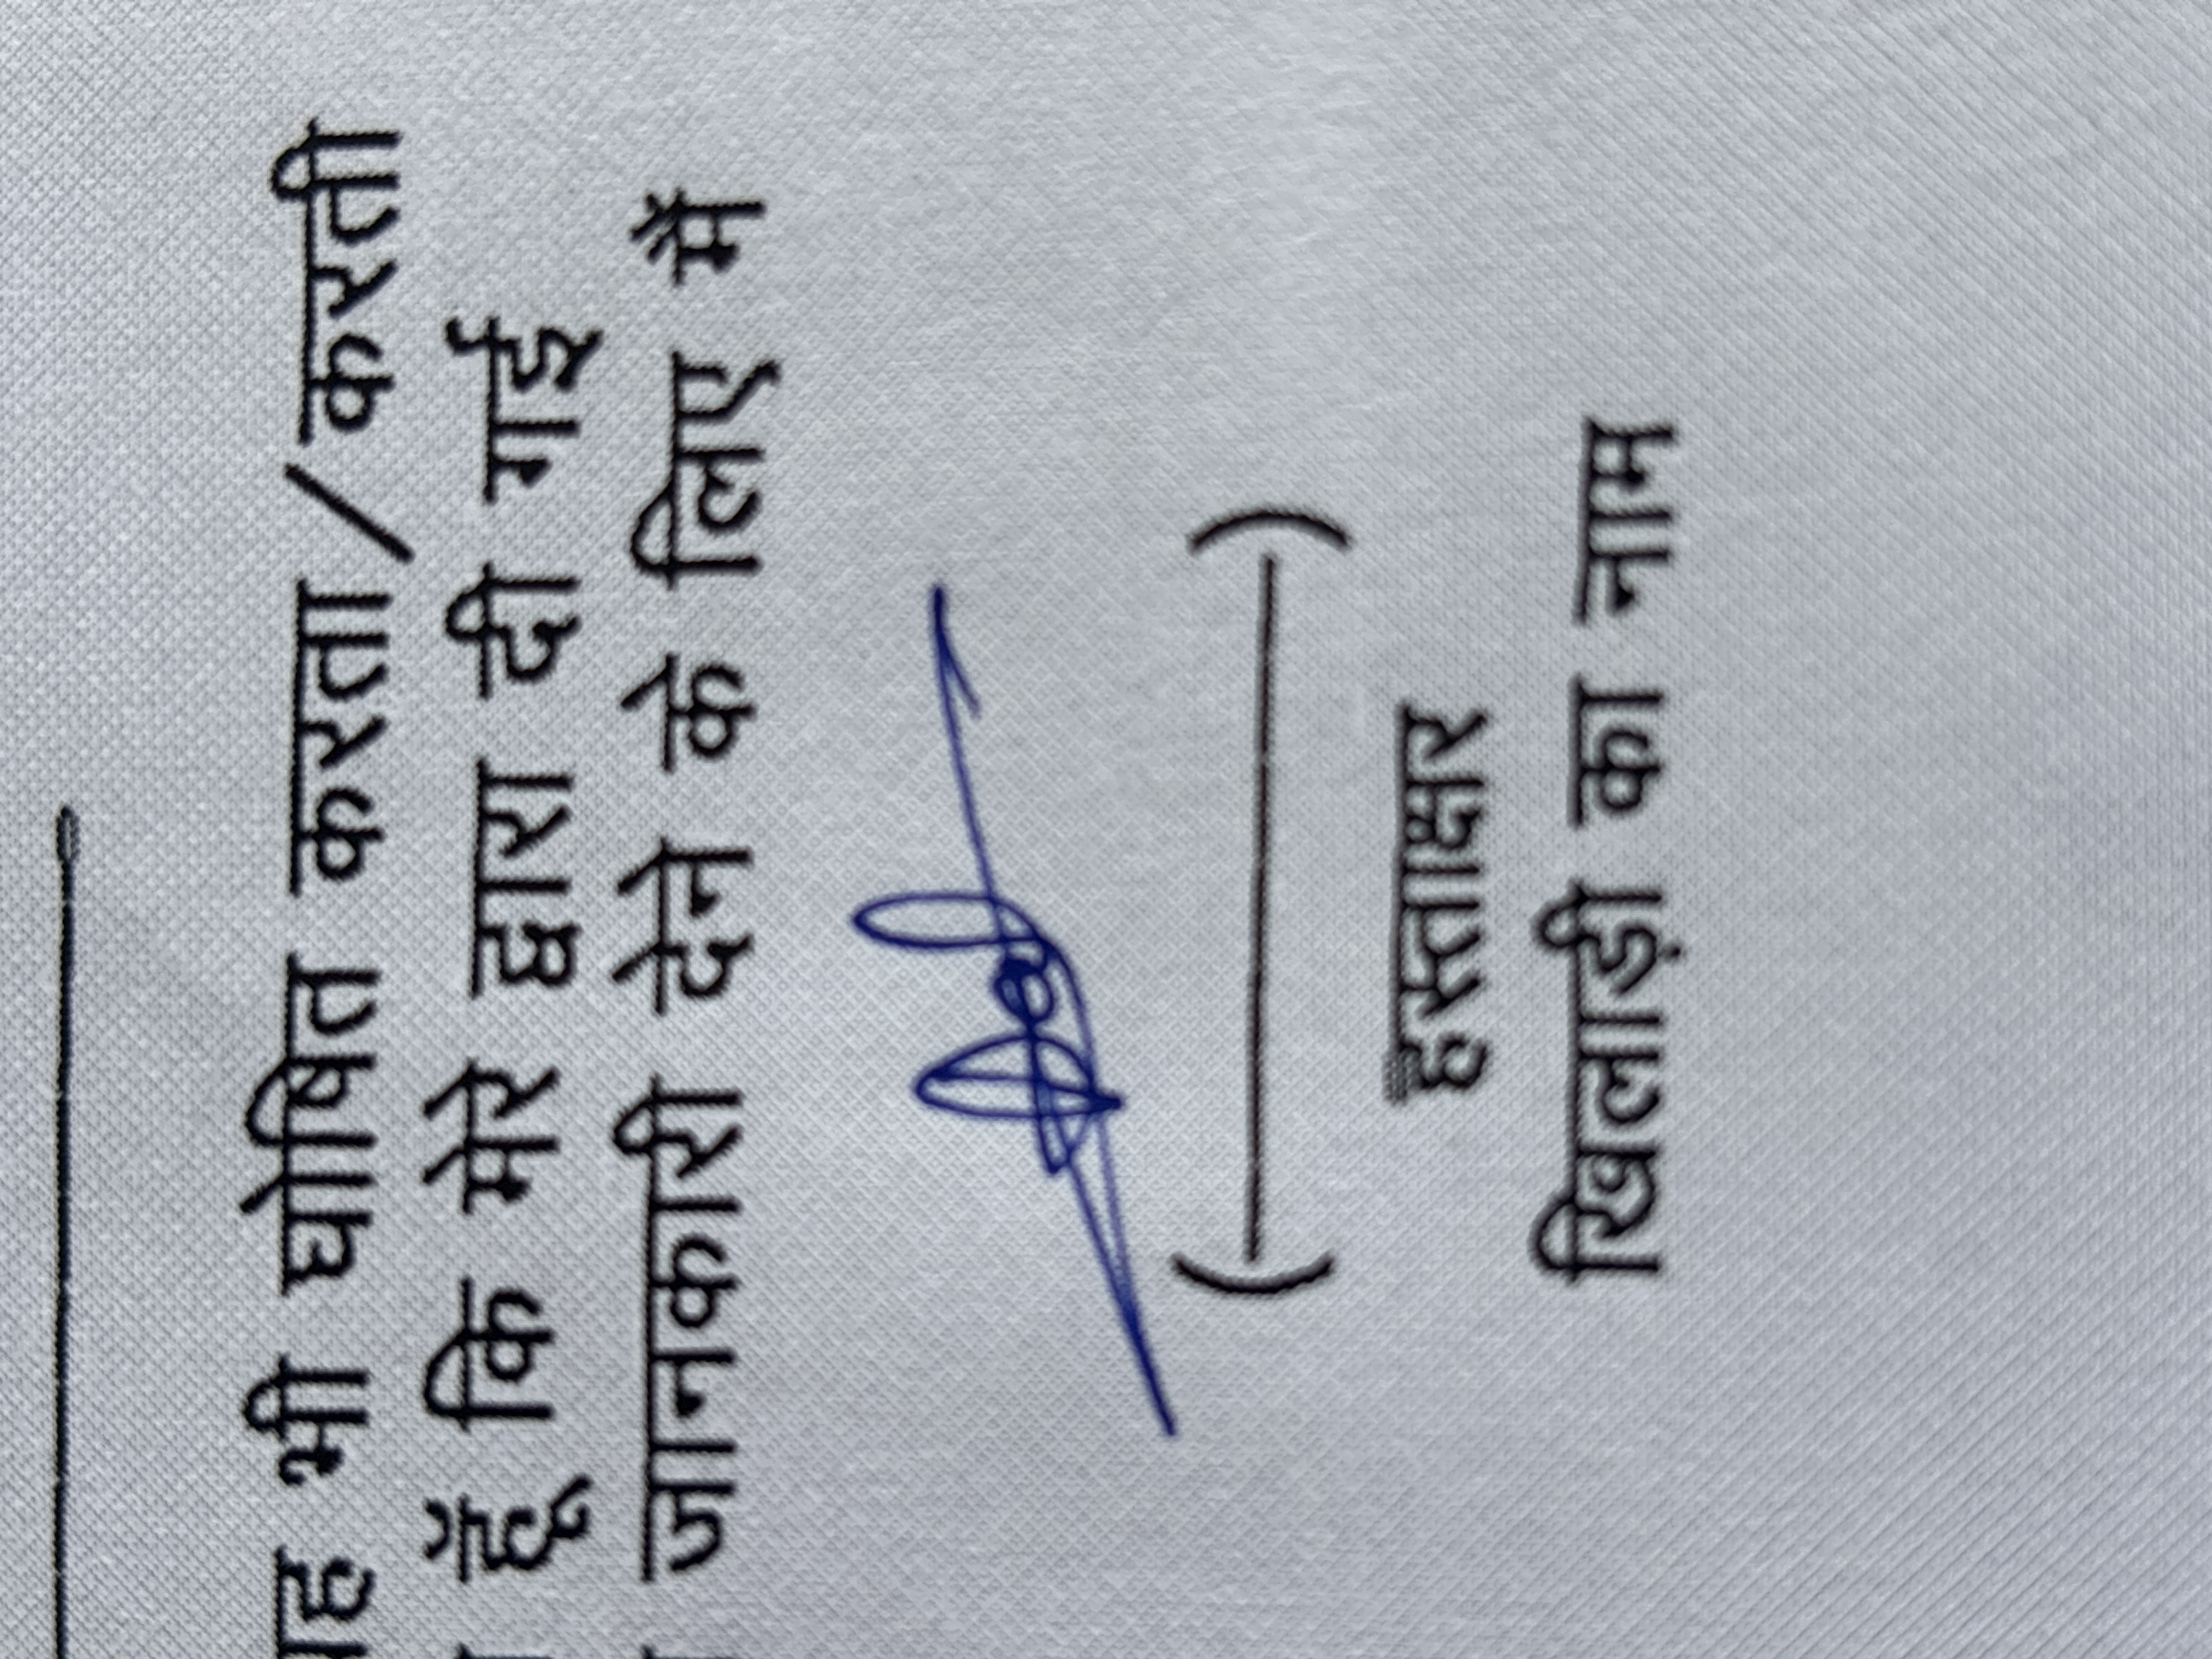 यह भी घोषित करता / करती
हूँ कि मेरे द्वारा दी गई
जानकारी देने के लिए मैं
(————)
हस्ताक्षर
खिलाड़ी का नाम